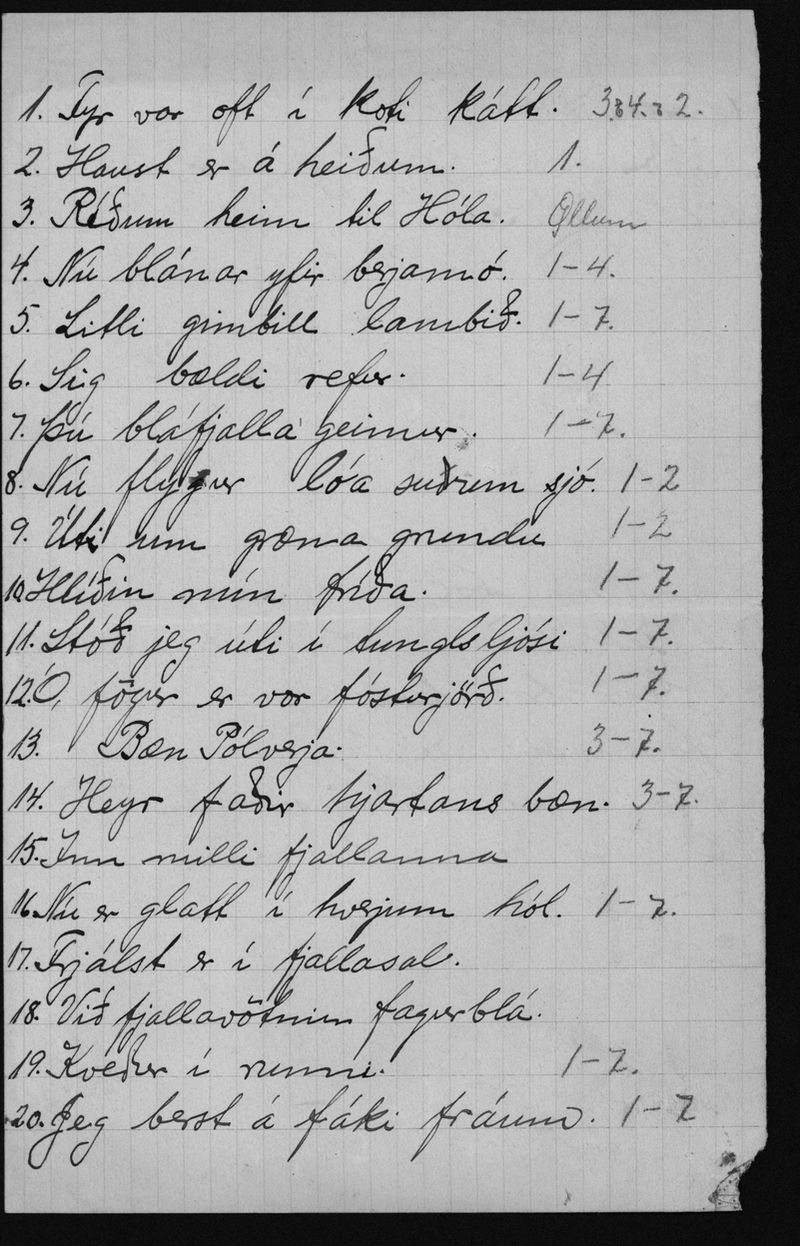 1. Fyr var oft í koti kátt. 3 & 4. & 2.
2. Haust er á heiðum. 1.
3. Ríðum heim til Hóla. Öllum
4. Nú blánar yfir berjamó. 1-4.
5. Litli gimbill lambið. 1-7.
6. Sig bældi refur. 1-4
7. Þú bláfjalla geimur. 1-7.
8. Nú flýgur lóa suðrum sjó. 1-2
9. Úti um græna grundu 1-2
10. Hlíðin mín fríða. 1-7.
11. Stóð jeg úti í tunglsljósi 1-7.
12. Ó, fögur er vor fósturjörð. 1-7.
13. Bæn Pólverja. 3-7.
14. Heyr faðir hjartans bæn. 3-7.
15. Inn milli fjallanna
16. Nú er glatt í hverjum hól. 1-7.
17. Frjálst er í fjallasal.
18. Við fjallavötnin fagurblá.
19. Kveður í runni. 1-7.
20. Jeg berst á fáki fráum. 1-7